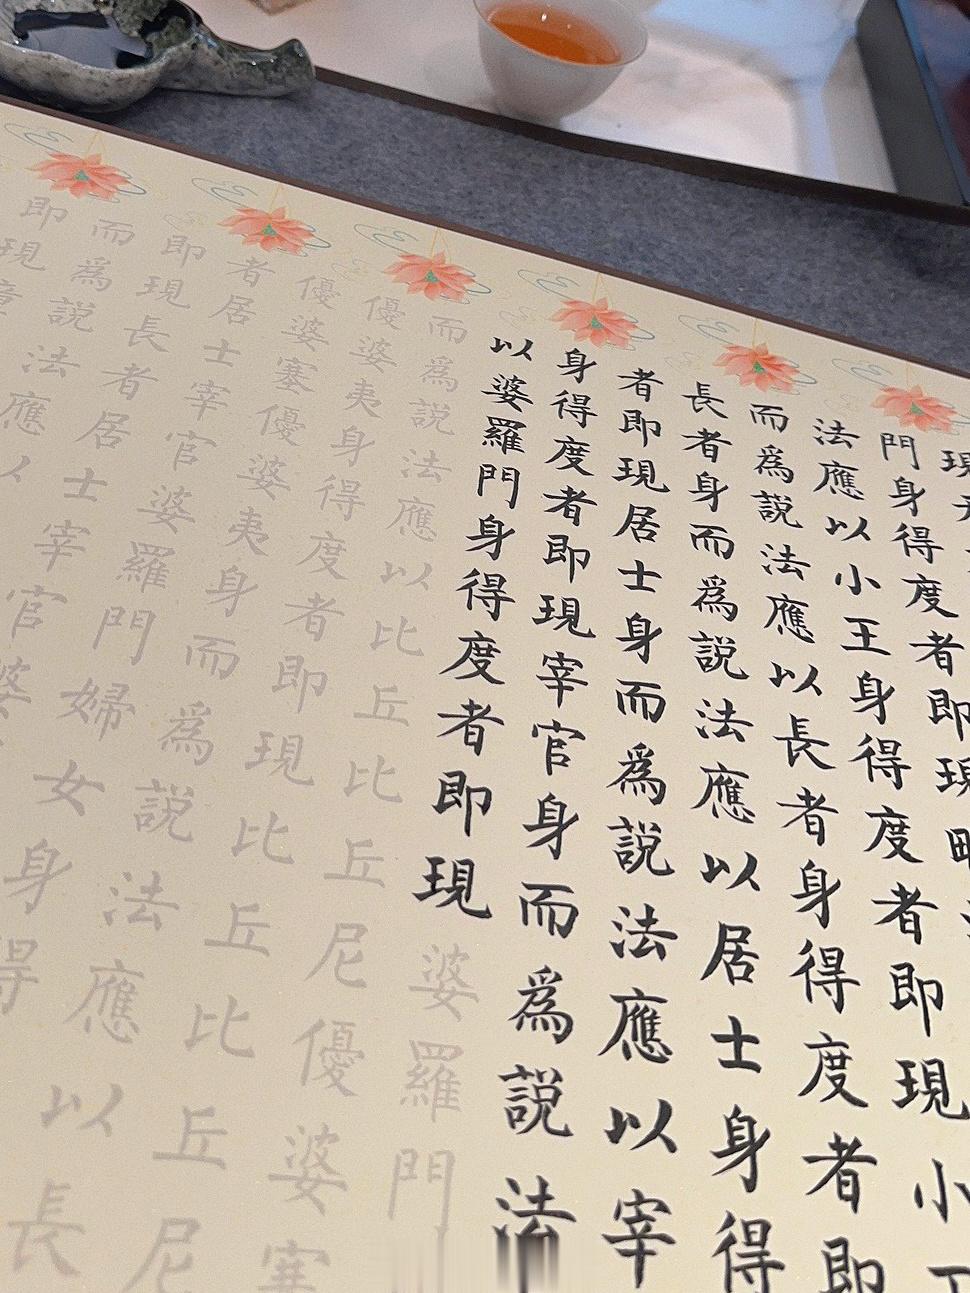 現
門身得度者即現毗
法應以小王身得度者即現小王
而爲説法應以長者身得度者即
長者身而爲説法應以居士身得
者即現居士身而爲説法應以宰
身得度者即現宰官身而爲説法
以婆羅門身得度者即現婆羅門
而爲説法應以比丘比丘尼優婆塞
優婆夷身得度者即現比丘比丘尼
優婆塞優婆夷身而爲説法應以長
者居士宰官婆羅門婦女身得
即現長者居士宰官婆
而爲説法應以
即現